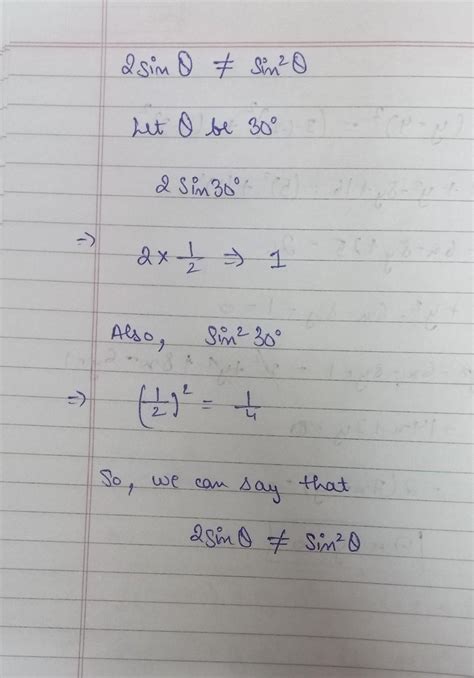 2sin θ ≠ sin²θ
Let θ be 30°
2 Sin30°
⇒ 2 × 1/2 ⇒ 1
Also, Sin² 30°
⇒ (1/2)² = 1/4
So, we can say that
2sinθ ≠ sin²θ